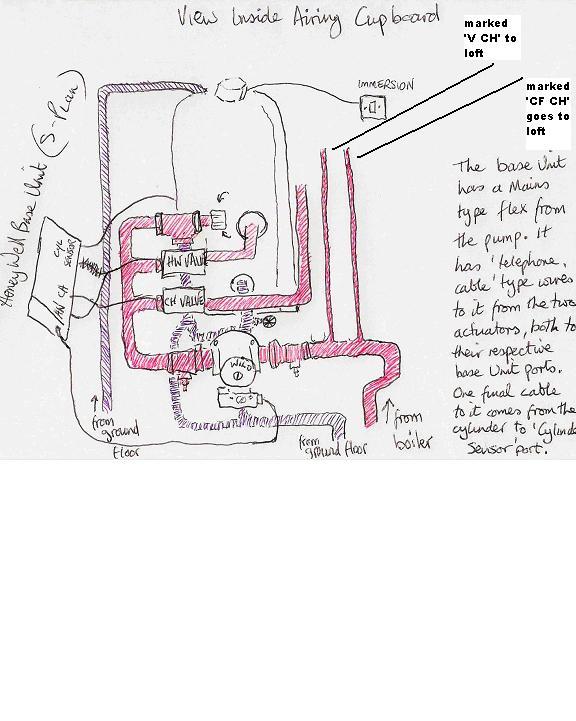 View Inside Airing Cupboard
marked
'V CH' to
loft
marked
'CF CH'
goes to
loft
IMMERSION
HoneyWell Base Unit (S-Plan)
CYL
SENSOR
HW
CH
HW VALVE
CH VALVE
WILO
from
ground
floor
from
ground floor
from
boiler
The base Unit
has a Mains
type flex from
the pump. It
has 'telephone
cable' type wires
to it from the two
actuators, both to
their respective
base Unit ports.
One final cable
to it comes from the
cylinder to 'Cylinder
Sensor' port.